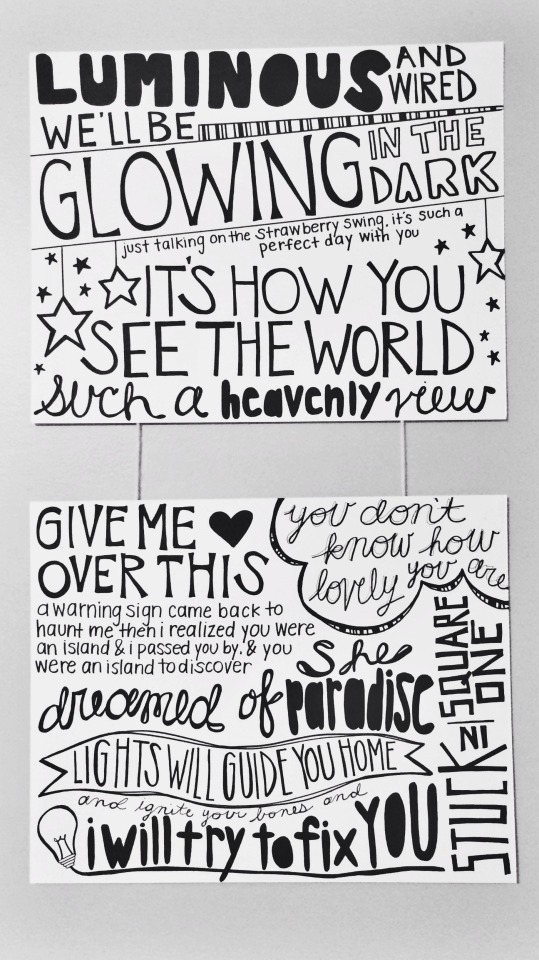 LUMINOUS AND WIRED
WE'LL BE
GLOWING IN THE DARK
just talking on the strawberry swing. it's such a
perfect day with you
IT'S HOW YOU
SEE THE WORLD
such a heavenly view
GIVE ME ♥
OVER THIS
you don't
know how
lovely you are
a warning sign came back to
haunt me then i realized you were
an island & i passed you by. & you
were an island to discover
She
dreamed of paradise
LIGHTS WILL GUIDE YOU HOME
and ignite your bones and
i will try to fix YOU
STUCK IN SQUARE ONE